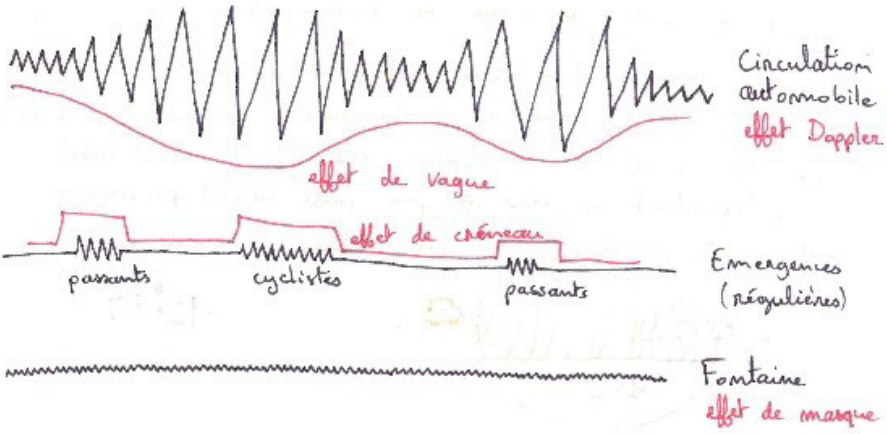 Circulation
automobile
effet Doppler
effet de vague
effet de créneau
passants
cyclistes
passants
Emergences
(régulières)
Fontaine
effet de masque